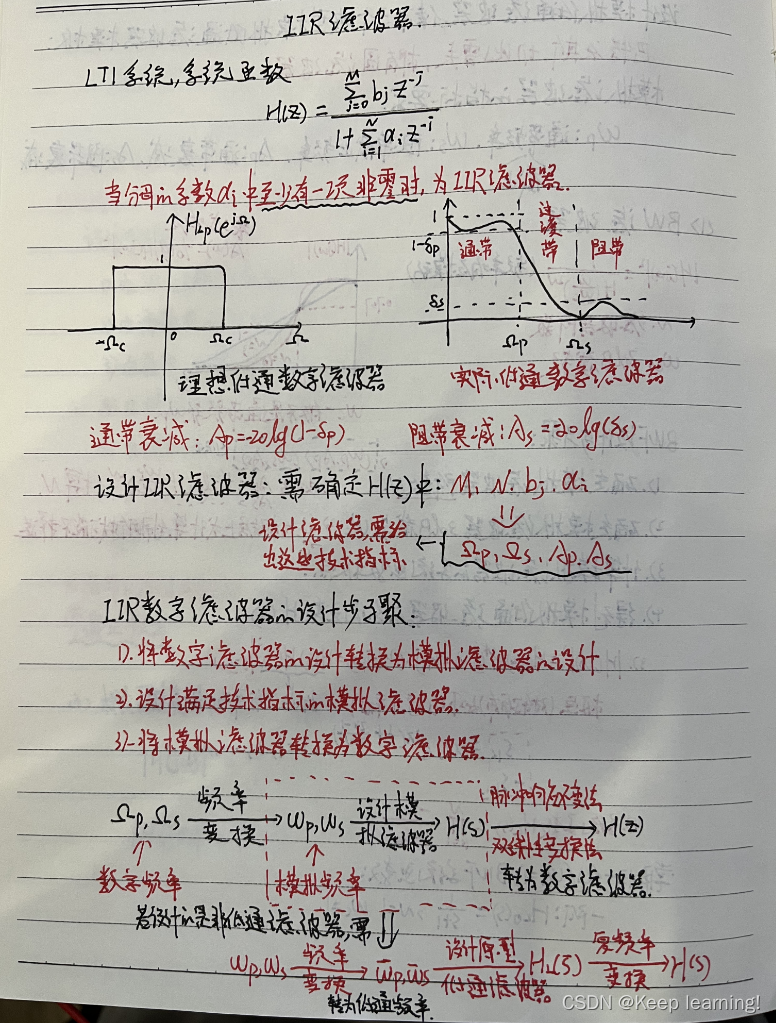 IIR滤波器.
LTI系统,系统函数
H(z) = \frac{\sum_{j=0}^{M} b_j z^{-j}}{1+\sum_{i=1}^{N} a_i z^{-i}}
当分母的系数ai中至少有一项非零时,为IIR滤波器.
HLP(e^{jΩ})
1
-Ωc 0 Ωc Ω
理想低通数字滤波器
1
1-δp
通带 过渡带 阻带
δs
Ωp Ωs
实际低通数字滤波器
通带衰减: Ap=-20lg(1-δp) 阻带衰减: As=-20lg(δs)
设计IIR滤波器: 需确定H(z)中: M, N. bj. ai
⇓
设计滤波器,需给
出这些技术指标
← { Ωp, Ωs, Ap. As
IIR数字滤波器的设计步骤:
1). 将数字滤波器的设计转换为模拟滤波器的设计
2). 设计满足技术指标的模拟滤波器.
3). 将模拟滤波器转换为数字滤波器.
Ωp, Ωs 频率变换→ ωp, ωs 设计模拟滤波器→ H(s) 脉冲响应不变法 双线性变换法→ H(z)
↑ ↑ 转为数字滤波器.
数字频率 模拟频率
若设计的是非低通滤波器,需 ⇓
ωp, ωs 频率变换→ ω̄p, ω̄s 设计原型低通滤波器→ HL(s̄) 复频率变换→ H(s)
转为低通频率.
CSDN @Keep learning!